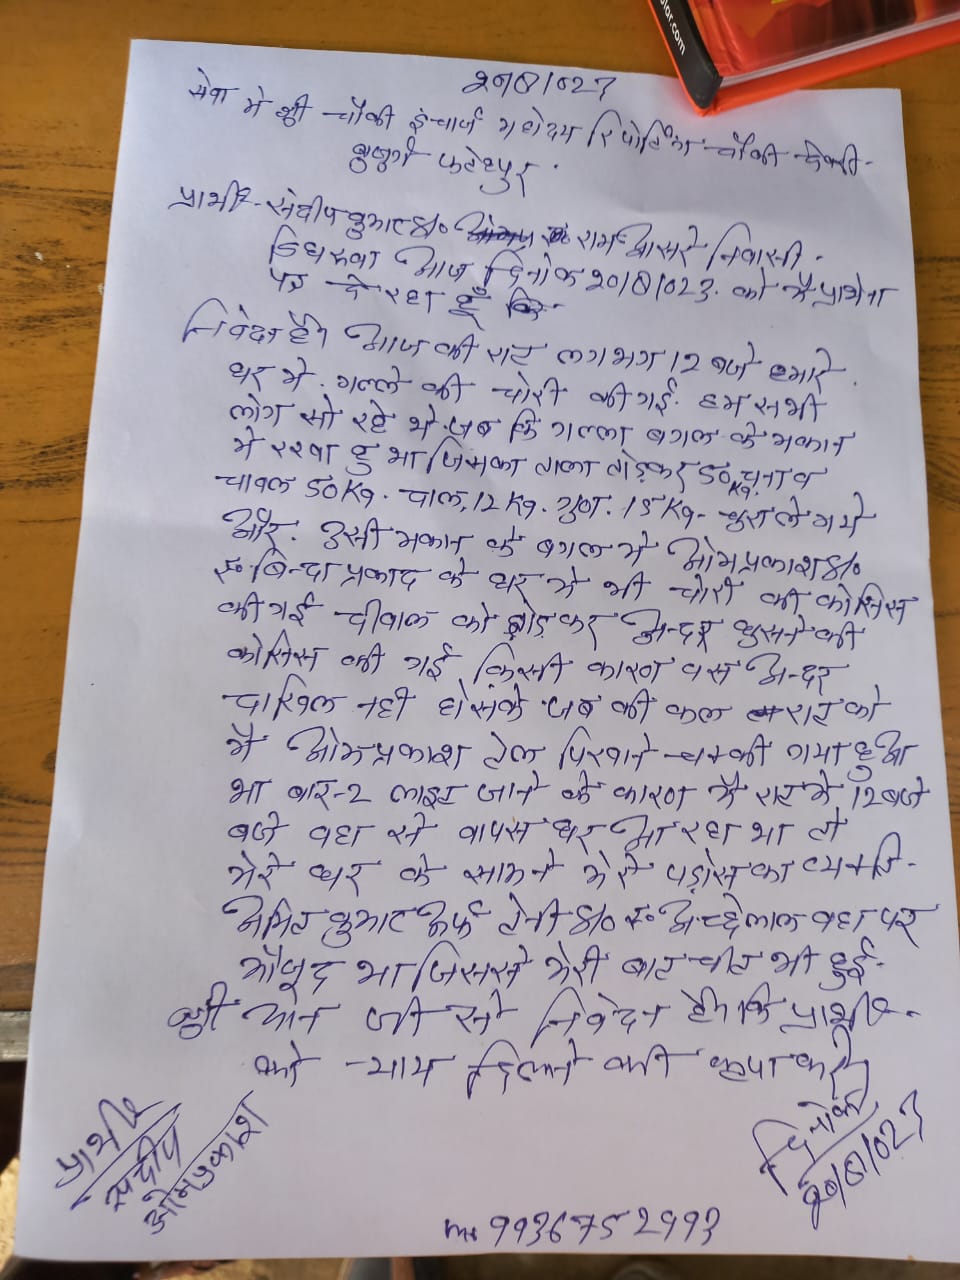 olor.com
20/8/023
सेवा मे श्री चौकी इंचार्ज महोदय रिपोर्टिंग चौकी
बुजुर्ग फतेहपुर
प्रार्थी - संदीप कुमार S/o राम आसरे निवासी
आज दिनांक 20/8/023. को मै प्रार्थना
पत्र दे रहा हूँ कि
निवेदन है आज की रात लगभग 12 बजे हमारे
घर मे गल्ले की चोरी की गई. हम सभी
लोग सो रहे थे जब कि गल्ला बगल के मकान
मे रख्खा हु था जिसका ताला तोड़कर 50 Kg. चना व
चावल 50 Kg. दाल, 12 Kg. गुण. 15 Kg- चुरा ले गये
और. उसी मकान के बगल मे ओमप्रकाश S/o
स्व० बिन्दा प्रकाद के घर मे भी चोरी की कोसिस
की गई दीवाल को तोड़कर अन्दर घुसने की
कोसिस की गई किसी कारण वस अन्दर
दाखिल नही हो सके जब की कल रात को
मै ओमप्रकाश तेल पिराने चक्की गया हुआ
था बार-2 लाइट जाने के कारण मै रात मे 12 बजे
बजे वहा से वापस घर आ रहा था तो
मेरे घर के सामने मेरे पड़ोस का व्यक्ति
अमित कुमार उर्फ S/o स्व० अच्छेलाल वहा पर
मौजूद था जिससे मेरी बात चीत भी हुई-
श्री मान जी से निवेदन है कि प्रार्थी
को न्याय दिलाने की कृपा करे
प्रार्थी
संदीप
ओमप्रकाश
दिनांक
20/8/023
mo 9936752993